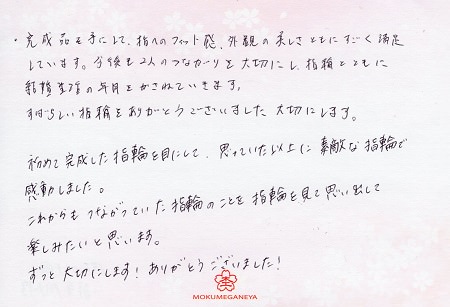 ・完成品を手にして、指へのフィット感、外観の美しさともにすごく満足
しています。今後も2人のつながりを大切にし、指輪とともに
結婚生活の年月をかさねていきます。
すばらしい指輪をありがとうございました 大切にします。
初めて完成した指輪を目にして、思っていた以上に素敵な指輪で
感動しました。
これからも つながっていた指輪のことを 指輪を見て思い出して
楽しみたいと思います。
ずっと大切にします！ありがとうございました！
MOKUMEGANEYA